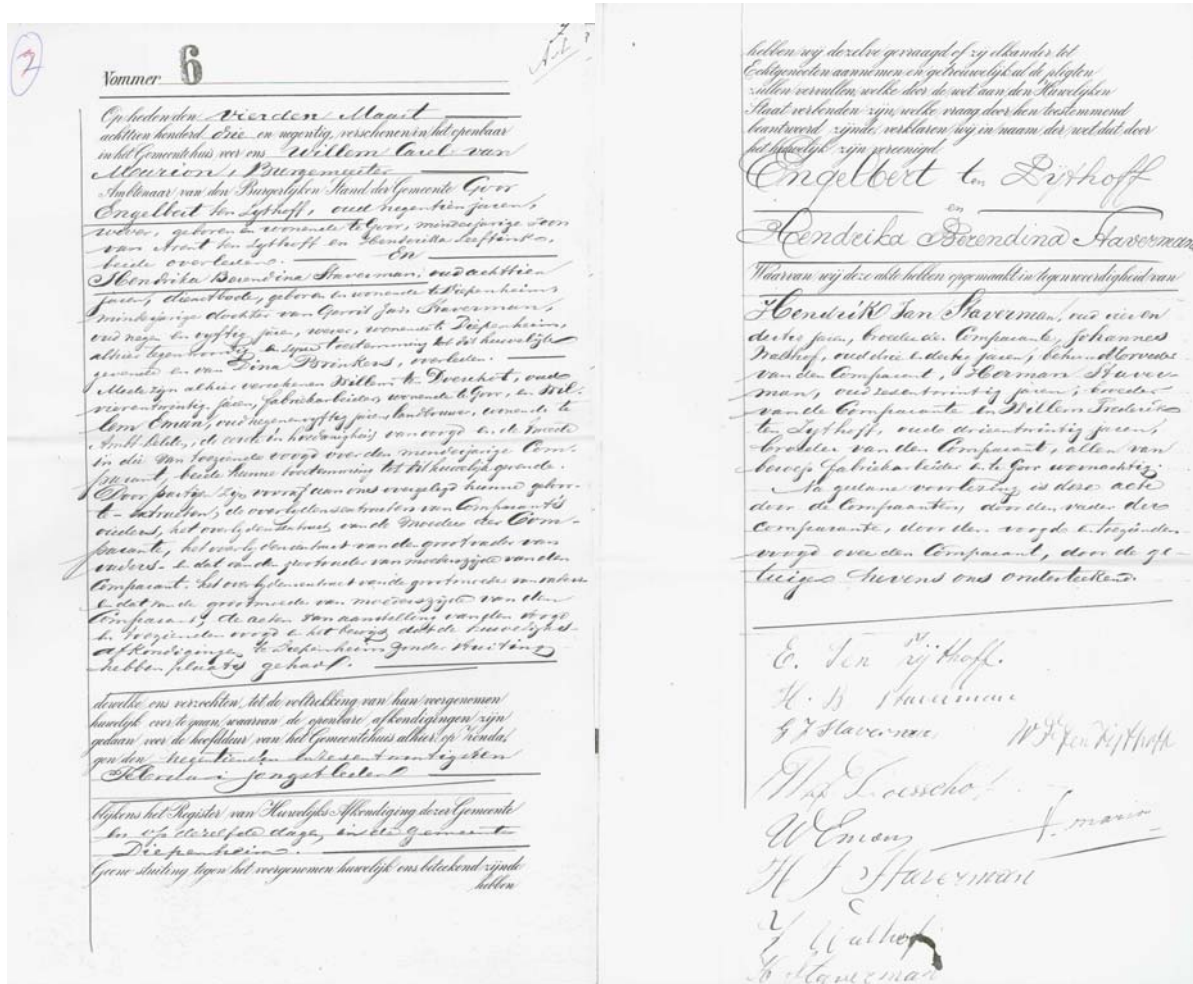 7
7
Nommer 6
Op heden den vierden Maart
achttien honderd drie en negentig, verschenen in het openbaar
in het Gemeentehuis voor ons Willem Carel van
Marion, Burgemeester
Ambtenaar van den Burgerlijken Stand der Gemeente Goor
Engelbert ten Zythoff, oud negentien jaren,
wever, geboren en wonende te Goor, minderjarige zoon
van Arent ten Zythoff en Henderika Leeftink,
beide overleden. En
Hendrika Berendina Staverman, oud achttien
jaren, dienstbode, geboren en wonende te Diepenheim,
minderjarige dochter van Gerrit Jan Staverman,
oud negen en vyftig jaren, wever, wonende te Diepenheim,
alhier tegenwoordig en zyne toestemming tot dit huwelijk
gevende en van Dina Brinkers, overleden.
Mede zijn alhier verschenen Willem te Doeschot, oud
vierentwintig jaren, fabriekarbeider, wonende te Goor, en Wil-
lem Eman, oud negenenvyftig jaren landbouwer, wonende te
Ambt Delden, de eerste in hoedanigheid van voogd en de tweede
in die van toeziende voogd over den minderjarige Com-
parant, beide hunne toestemming tot dit huwelijk gevende.
Door partijen zijn vooraf aan ons overgelegd hunne geboor-
te-extracten, de overlydensextracten van Comparant's
ouders, het overlydensextract van de moeder der Com-
parante, het overlydensextract van den grootvader van
vaders- en dat van den grootvader van moederszyde van den
Comparant, het overlydensextract van de grootmoeder van vaders-
en dat van de grootmoeder van moederszyde van den
Comparant, de acten van aanstelling van den voogd
en toezienden voogd en het bewijs dat de huwelijks-
afkondigingen te Diepenheim zonder stuiting
hebben plaats gehad.
dewelke ons verzochten, tot de voltrekking van hun voorgenomen
huwelijk over te gaan, waarvan de openbare afkondigingen zijn
gedaan voor de hoofddeur van het Gemeentehuis alhier, op Zonda,
gen den negentienden en zesentwintigsten
Februari jongstleden
blijkens het Register van Huwelijks Afkondiging dezer Gemeente
en op dezelfde dagen in de gemeente
Diepenheim.
Geene stuiting tegen het voorgenomen huwelijk ons beteekend zijnde
hebben
hebben wij dezelve gevraagd of zij elkander tot
Echtgenooten aannemen en getrouwelijk al de pligten
zullen vervullen, welke door de wet aan den Huwelijken
Staat verbonden zijn, welke vraag door hen toestemmend
beantwoord zijnde, verklaren wij in naam der wet dat door
het huwelijk zijn vereenigd.
Engelbert ten Zythoff
en
Hendrika Berendina Staverman
Waarvan wij deze akte hebben opgemaakt in tegenwoordigheid van
Hendrik Jan Staverman, oud vier en
dertig jaren, broeder der Comparante, Johannes
Walhof, oud drie en dertig jaren, behuwdbroeder
van den Comparant, Herman Staver-
man, oud zesentwintig jaren, broeder
van de Comparante en Willem Frederik
ten Zythoff, oud drieentwintig jaren,
broeder van den Comparant, allen van
beroep fabriekarbeider en te Goor woonachtig.
Na gedane voorlezing is deze acte
door de Comparanten, door den vader der
comparante, door den voogd en toezienden
voogd over den Comparant, door de ge-
tuigen nevens ons onderteekend.
E. Ten Zijthoff.
H. B Staverman
G J Staverman
W F Ten Zijthoff
W te Doesschot
W Eman
v. marion
H J Staverman
J Walhof
H Staverman